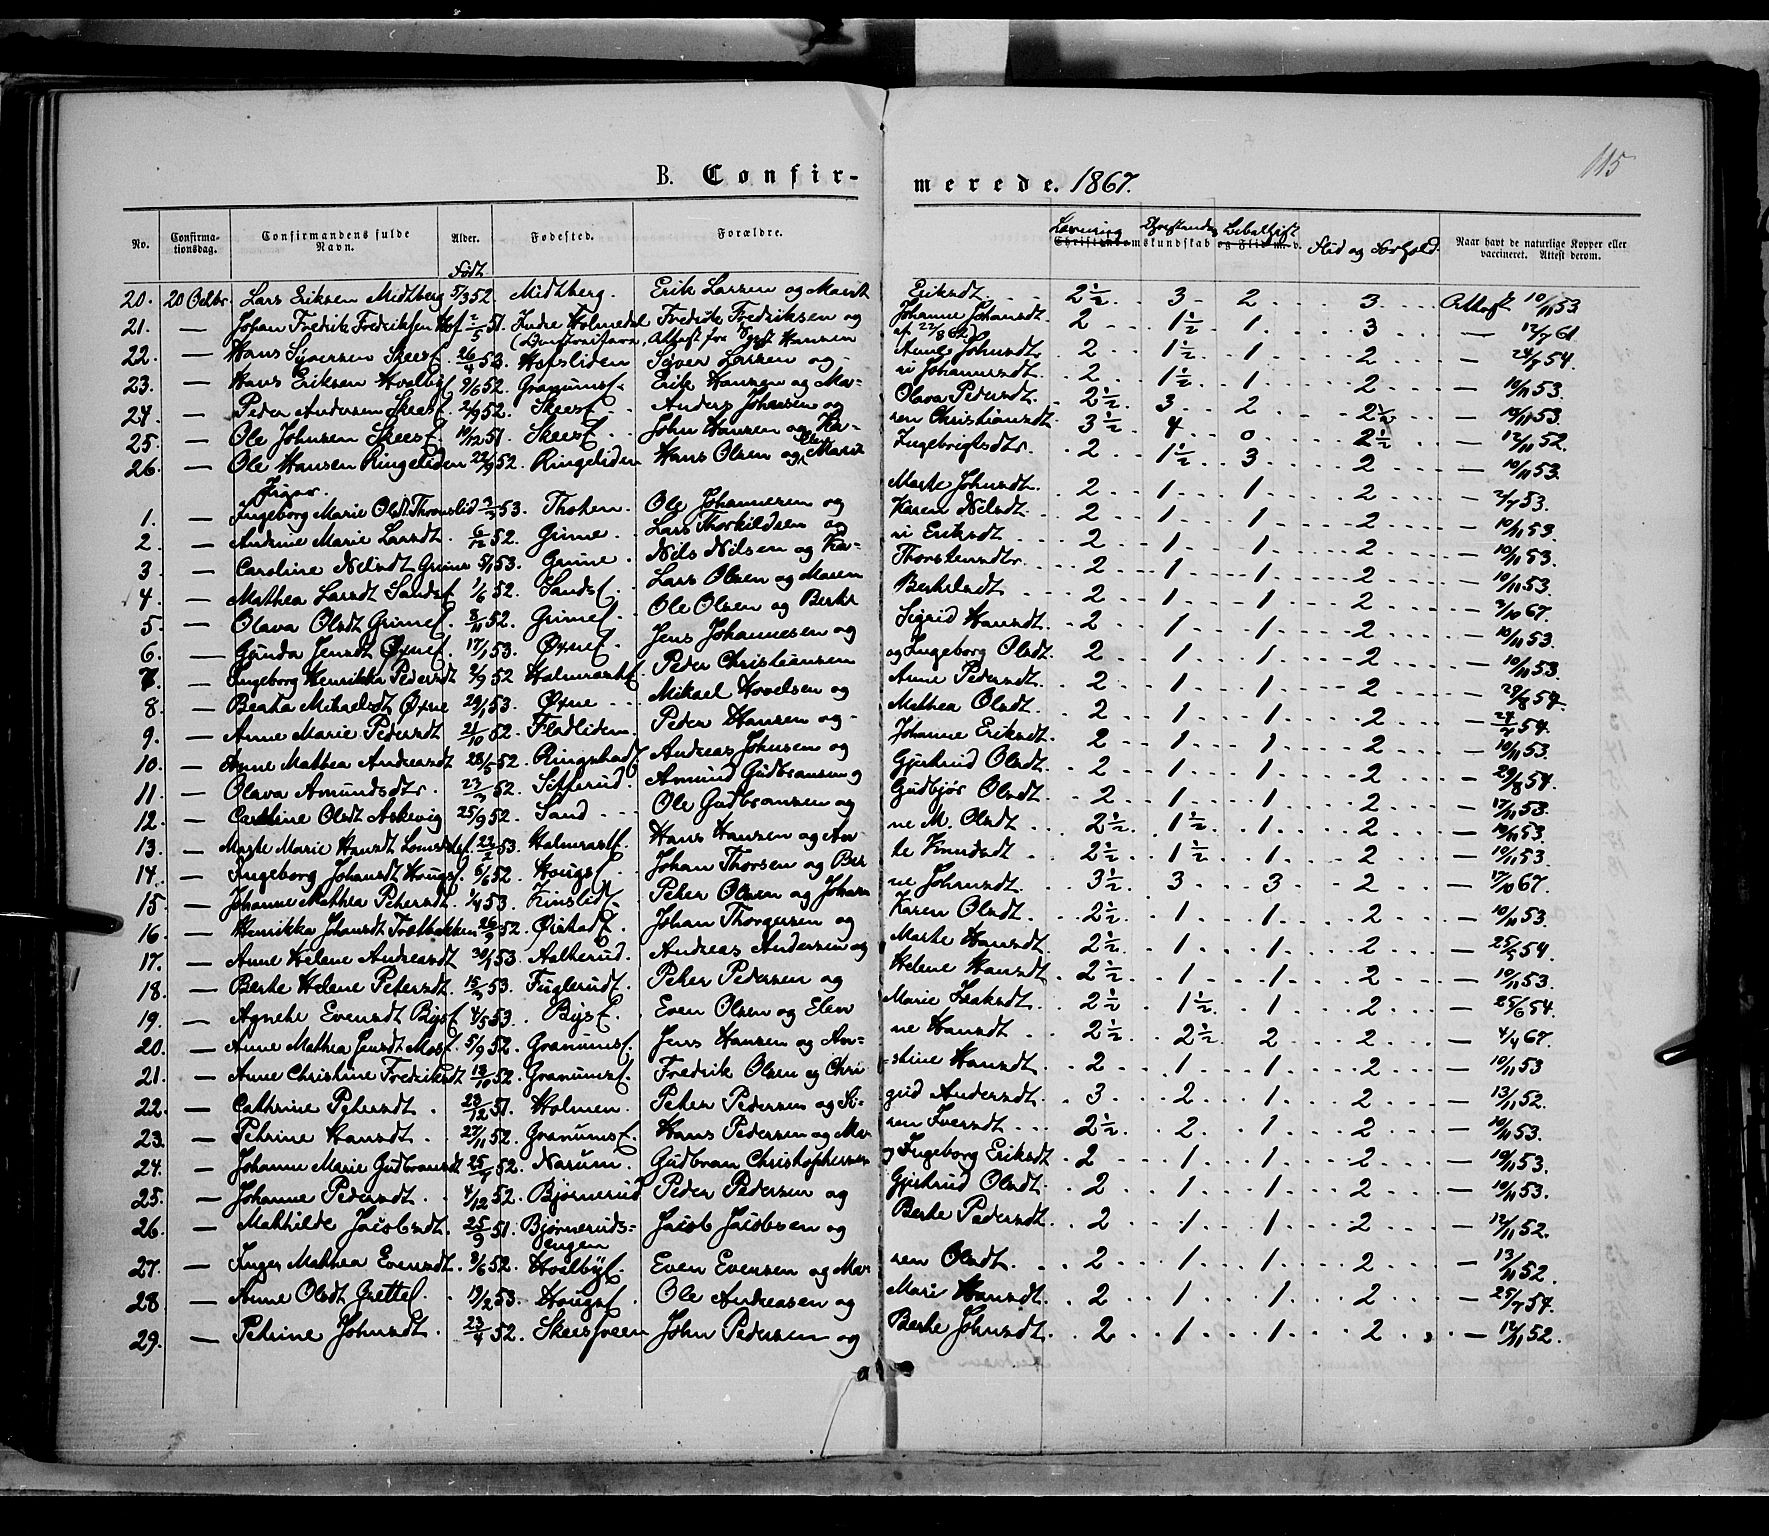 115
B. Confirmerede. 1867.
No. Confirmationsdag. Confirmandens fulde Navn. Alder. Født Fødested. Forældre. Læsning Christendomskundskab og Flid m. v. Flid og Forhold. Naar havt de naturlige Kopper eller vaccineret. Attest derom.
20. 20 Octbr. Lars Eriksen Midtberg 5/3 52. Midtberg. Erik Larsen og Marit Eriksdt. 2½ 3 2 3 Attest 10/11 53
21. — Johan Fredrik Fredriksen Hof 2/5 51. Indre Holmedal Fredrik Fredriksen og Johanne Johansdt. 2 1½ 1 3 — 12/7 61
22. — Hans Syversen Skeesf. 26/4 53. Hofsliden Syver Larsen og Anne Johnsdtr 2 1½ 1 2 — 24/7 54.
23. — Hans Eriksen Hvalbyf. 9/6 52. Granumsf. Erik Hansen og Mari Johannesdt. 2 1½ 1 2 — 10/11 53
24. — Peder Andersen Skeesf. 2/9 52. Skeesf. Anders Johnsen og Olava Pedersdt. 2½ 3 2 2½ — 10/11 53.
25. — Ole Johnsen Skeesf. 10/12 51. Skeesf. John Hansen og Karen Christiansdt 3½ 4 0 2½ — 12/11 52
26. — Ole Hansen Ringeliden 22/9 52. Ringeliden Hans Olsen og Marie Ingebrigtsdtr. 2 1½ 3 2 — 10/11 53.
Piger.
1. — Ingeborg Marie Olsdt Thronslid 2/3 53. Thoten. Ole Johannesen og Marte Johnsdt. 2 1 1 2 — 2/7 53.
2. — Andrine Marie Larsdt. 6/12 52. Grime. Lars Thorkildsen og Karen Nilsdt. 2 1 1 2 — 10/11 53.
3. — Caroline Nilsdt Grime 5/1 53. Grime. Nils Nilsen og Kari Eriksdt 2 1 1 2 — 10/11 53
4. — Mathea Larsdt Sandsf. 1/6 52. Sandsf. Lars Olsen og Maren Thorstensdtr. 2 1 1 2 — 10/11 53.
5. — Olava Olsdt Grimef. 3/11 52. Grimef. Ole Olsen og Berte Bertelsdt 2 1 1 2 — 2/10 67.
6. — Gunda Jensdt Øxnef. 17/1 53. Øxnef. Jens Johannesen og Sigrid Hansdt 2 1 1 2 — 10/11 53.
7. — Ingeborg Henrikka Pedersdt 2/9 52 Holmsætf. Peder Christiansen og Ingeborg Olsdt. 2 1 1 2 — 10/11 53.
8. — Beata Mikaelsdt Øxne 29/1 53. Øxne Mikael Hovelsen og Anne Pedersdt. 2 1 1 2 — 29/8 54.
9. — Anne Marie Pedersdt 21/10 52. Fladliden. Peder Hansen og Mathea Olsdt 2 1 1 2 — 24/7 54.
10. — Anne Mathea Andreasdt 28/6 52. Ringstadf. Andreas Johnsen og Johanne Eriksdt. 2 1 1 2 — 10/11 53.
11. — Olava Amundsdtr. 23/7 52. Sifferud. Amund Gudbransen og Gjertrud Olsdt. 2 1 1 2 — 29/8 54.
12. — Cathrine Olsdt Askevig 25/9 52. Sand Ole Gudbransen og Gudbjør Olsdt. 2 1 1 2 — 17/11 53.
13. — Marte Marie Hansdt 22/2 53. Holmsætf. Hans Hansen og Anne M. Olsdt 2½ 1½ 1 2 — 10/11 53.
14. — Ingeborg Johansdt Hougsf. 6/6 52. Hougsf. Johan Thorsen og Berte Knudsdt 2½ 1½ 1 2 — 10/11 53.
15. — Johanne Mathea Petersdt. 1/4 53. Kinslidf. Peter Olsen og Johanne Johnsdt 3½ 3 3 2 — 17/10 67.
16. — Henrikka Johansdt Trælbakken 26/9 52. Øistadf. Johan Thorgersen og Karen Olsdt. 2½ 1 1 2 — 10/11 53.
17. — Anne Helene Andreasdt 30/1 53. Aalterud. Andreas Andersen og Marte Hansdt. 2½ 1 1 2 — 25/5 54.
18. — Berte Helene Petersdt. 15/3 53. Fuglerudf. Peter Pedersen og Helene Hansdt 2½ 1 1 2 — 10/11 53.
19. — Agnete Evensdt Bysf. 4/5 53. Bysf. Even Olsen og Elen Marie Isaksdt. 2½ 1½ 1 2 — 25/6 54.
20. — Anne Mathea Jensdt Mosf. 5/9 52. Granumsf. Jens Hansen og Anne Hansdt 2½ 2½ 2 2 — 4/4 67.
21. — Anne Christine Fredriksdt 13/10 52. Granumsf. Fredrik Olsen og Christine Hansdt. 2 1 1 2 — 10/11 53
22. — Cathrine Petersdt. 23/12 51. Holmen. Peter Pedersen og Sigrid Andersdt. 3 2 1 2 — 13/11 52.
23. — Petrine Hansdt. 27/11 52. Granumsf. Hans Pedersen og Maren Iversdt 2½ 2 1 2 — 10/11 53.
24. — Johanne Marie Gudbransdt 25/7 52. Narum. Gudbran Christophersen og Ingeborg Eriksdt 2 1 1 2 — 10/11 53.
25. — Johanne Pedersdt. 4/12 52. Bjørnerud Peder Pedersen og Gjertrud Olsdt. 2 1 1 2 — 10/11 53.
26. — Mathilde Jacobsdt. 25/9 51. Bjørnerudsengen Jacob Jacobsen og Berte Pedersdt. 2 1 1 2 — 12/11 52.
27. — Inger Mathea Evensdt. 3/6 52. Hvalbyf. Even Evensen og Maren Olsdt. 2 1 1 2 — 13/11 52.
28. — Anne Olsdt Grettef. 17/2 53. Hougsf. Ole Andreasen og Mari Hansdt. 2 1 1 2 — 25/7 54.
29. — Petrine Johnsdt. 23/4 52. Skeesveen John Pedersen og Berte Johnsdt. 2 1 1 2 — 12/11 52.